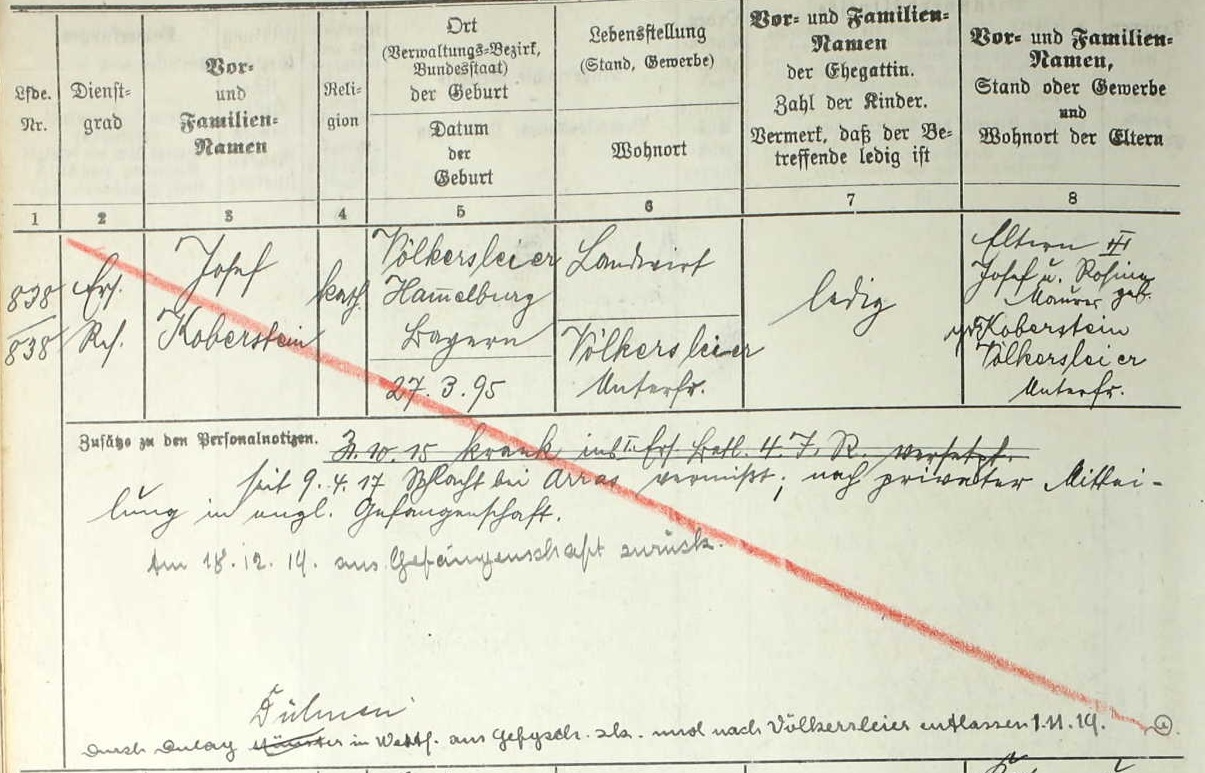 Lfde. Nr.
Dienst-
grad
Vor-
und
Familien-
Namen
Reli-
gion
Ort
(Verwaltungs-Bezirk,
Bundesstaat)
der Geburt
Datum
der
Geburt
Lebensstellung
(Stand, Gewerbe)
Wohnort
Vor- und Familien-
Namen
der Ehegattin.
Zahl der Kinder.
Vermerk, daß der Be-
treffende ledig ist
Vor- und Familien-
Namen,
Stand oder Gewerbe
und
Wohnort der Eltern
1 2 3 4 5 6 7 8
838
838
Ers.
Res.
Josef
Koberstein
kath.
Völkersleier
Ham̅elburg
Bayern
27.3.95
Landwirt
Völkersleier
Unterfr.
ledig
Eltern
Josef u. Rosina
Maurer geb.
Koberstein
Völkersleier
Unterfr.
Zusätze zu den Personalnotizen. 3.10.15 krank ins I. Ers. Batl. 4. I. R. versetzt.
seit 9.4.17 Schlacht bei Arras vermißt; nach privater Mittei-
lung in engl. Gefangenschaft.
Am 18.12.19. aus Gefangenschaft zurück.
Dülmen
durch Dulag Münster in Westf. aus Gefgsch. und nach Völkersleier entlassen 1.11.19.